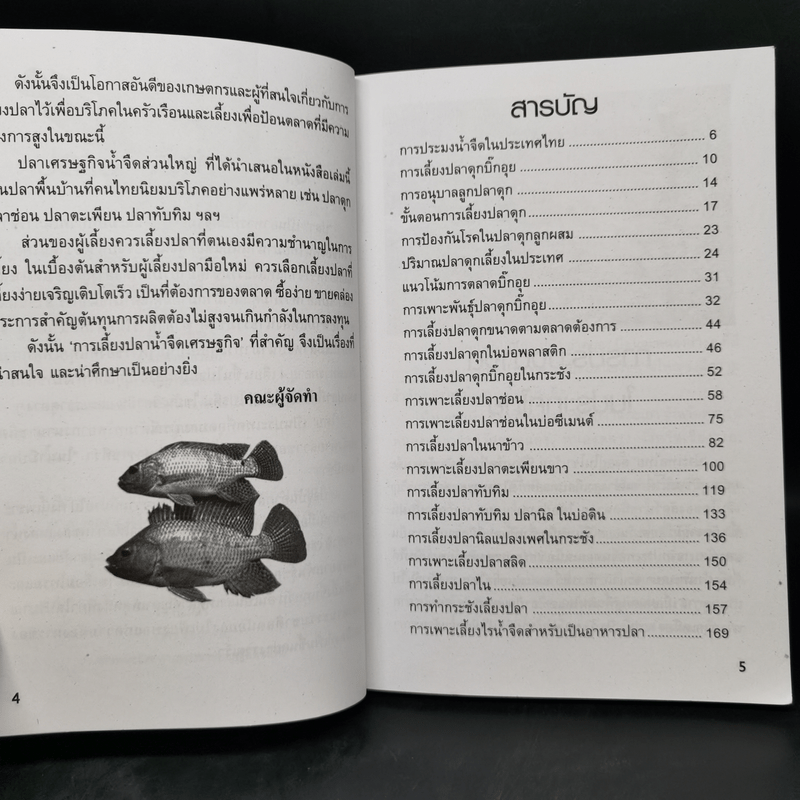 ดังนั้นจึงเป็นโอกาสอันดีของเกษตกรและผู้ที่สนใจเกี่ยวกับการ
ปลาไว้เพื่อบริโภคในครัวเรือนและเลี้ยงเพื่อป้อนตลาดที่มีความ
งการสูงในขณะนี้
ปลาเศรษฐกิจน้ำจืดส่วนใหญ่ ที่ได้นำเสนอในหนังสือเล่มนี้
นปลาพื้นบ้านที่คนไทยนิยมบริโภคอย่างแพร่หลาย เช่น ปลาดุก
ลาช่อน ปลาตะเพียน ปลาทับทิม ฯลฯ
ส่วนของผู้เลี้ยงควรเลี้ยงปลาที่ตนเองมีความชำนาญในการ
ี้ยง ในเบื้องต้นสำหรับผู้เลี้ยงปลามือใหม่ ควรเลือกเลี้ยงปลาที่
ี้ยงง่ายเจริญเติบโตเร็ว เป็นที่ต้องการของตลาด ซื้อง่าย ขายคล่อง
ระการสำคัญต้นทุนการผลิตต้องไม่สูงจนเกินกำลังในการลงทุน
ดังนั้น 'การเลี้ยงปลาน้ำจืดเศรษฐกิจ' ที่สำคัญ จึงเป็นเรื่องที่
น่าสนใจ และน่าศึกษาเป็นอย่างยิ่ง
คณะผู้จัดทำ
4
สารบัญ
การประมงน้ำจืดในประเทศไทย ........ 6
การเลี้ยงปลาดุกบิ๊กอุย ........ 10
การอนุบาลลูกปลาดุก ........ 14
ขั้นตอนการเลี้ยงปลาดุก ........ 17
การป้องกันโรคในปลาดุกลูกผสม ........ 23
ปริมาณปลาดุกเลี้ยงในประเทศ ........ 24
แนวโน้มการตลาดบิ๊กอุย ........ 31
การเพาะพันธุ์ปลาดุกบิ๊กอุย ........ 32
การเลี้ยงปลาดุกขนาดตามตลาดต้องการ ........ 44
การเลี้ยงปลาดุกในบ่อพลาสติก ........ 46
การเลี้ยงปลาดุกบิ๊กอุยในกระชัง ........ 52
การเพาะเลี้ยงปลาช่อน ........ 58
การเพาะเลี้ยงปลาช่อนในบ่อซีเมนต์ ........ 75
การเลี้ยงปลาในนาข้าว ........ 82
การเพาะเลี้ยงปลาตะเพียนขาว ........ 100
การเลี้ยงปลาทับทิม ........ 119
การเลี้ยงปลาทับทิม ปลานิล ในบ่อดิน ........ 133
การเลี้ยงปลานิลแปลงเพศในกระชัง ........ 136
การเพาะเลี้ยงปลาสลิด ........ 150
การเลี้ยงปลาไน ........ 154
การทำกระชังเลี้ยงปลา ........ 157
การเพาะเลี้ยงไรน้ำจืดสำหรับเป็นอาหารปลา ........ 169
5